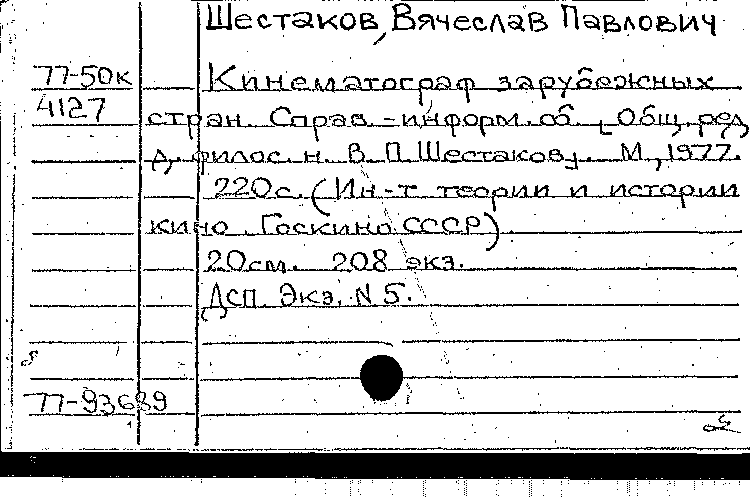 Шестаков, Вячеслав Павлович
77-50к Кинематограф зарубежных
4127 стран. Справ.-информ. сб. Общ. ред.
д. филос. н. В. П. Шестакову. М., 1977.
220с. (Ин-т теории и истории
кино Госкино СССР).
20см. 208 экз.
ДСП. Экз. N 5.
77-93689